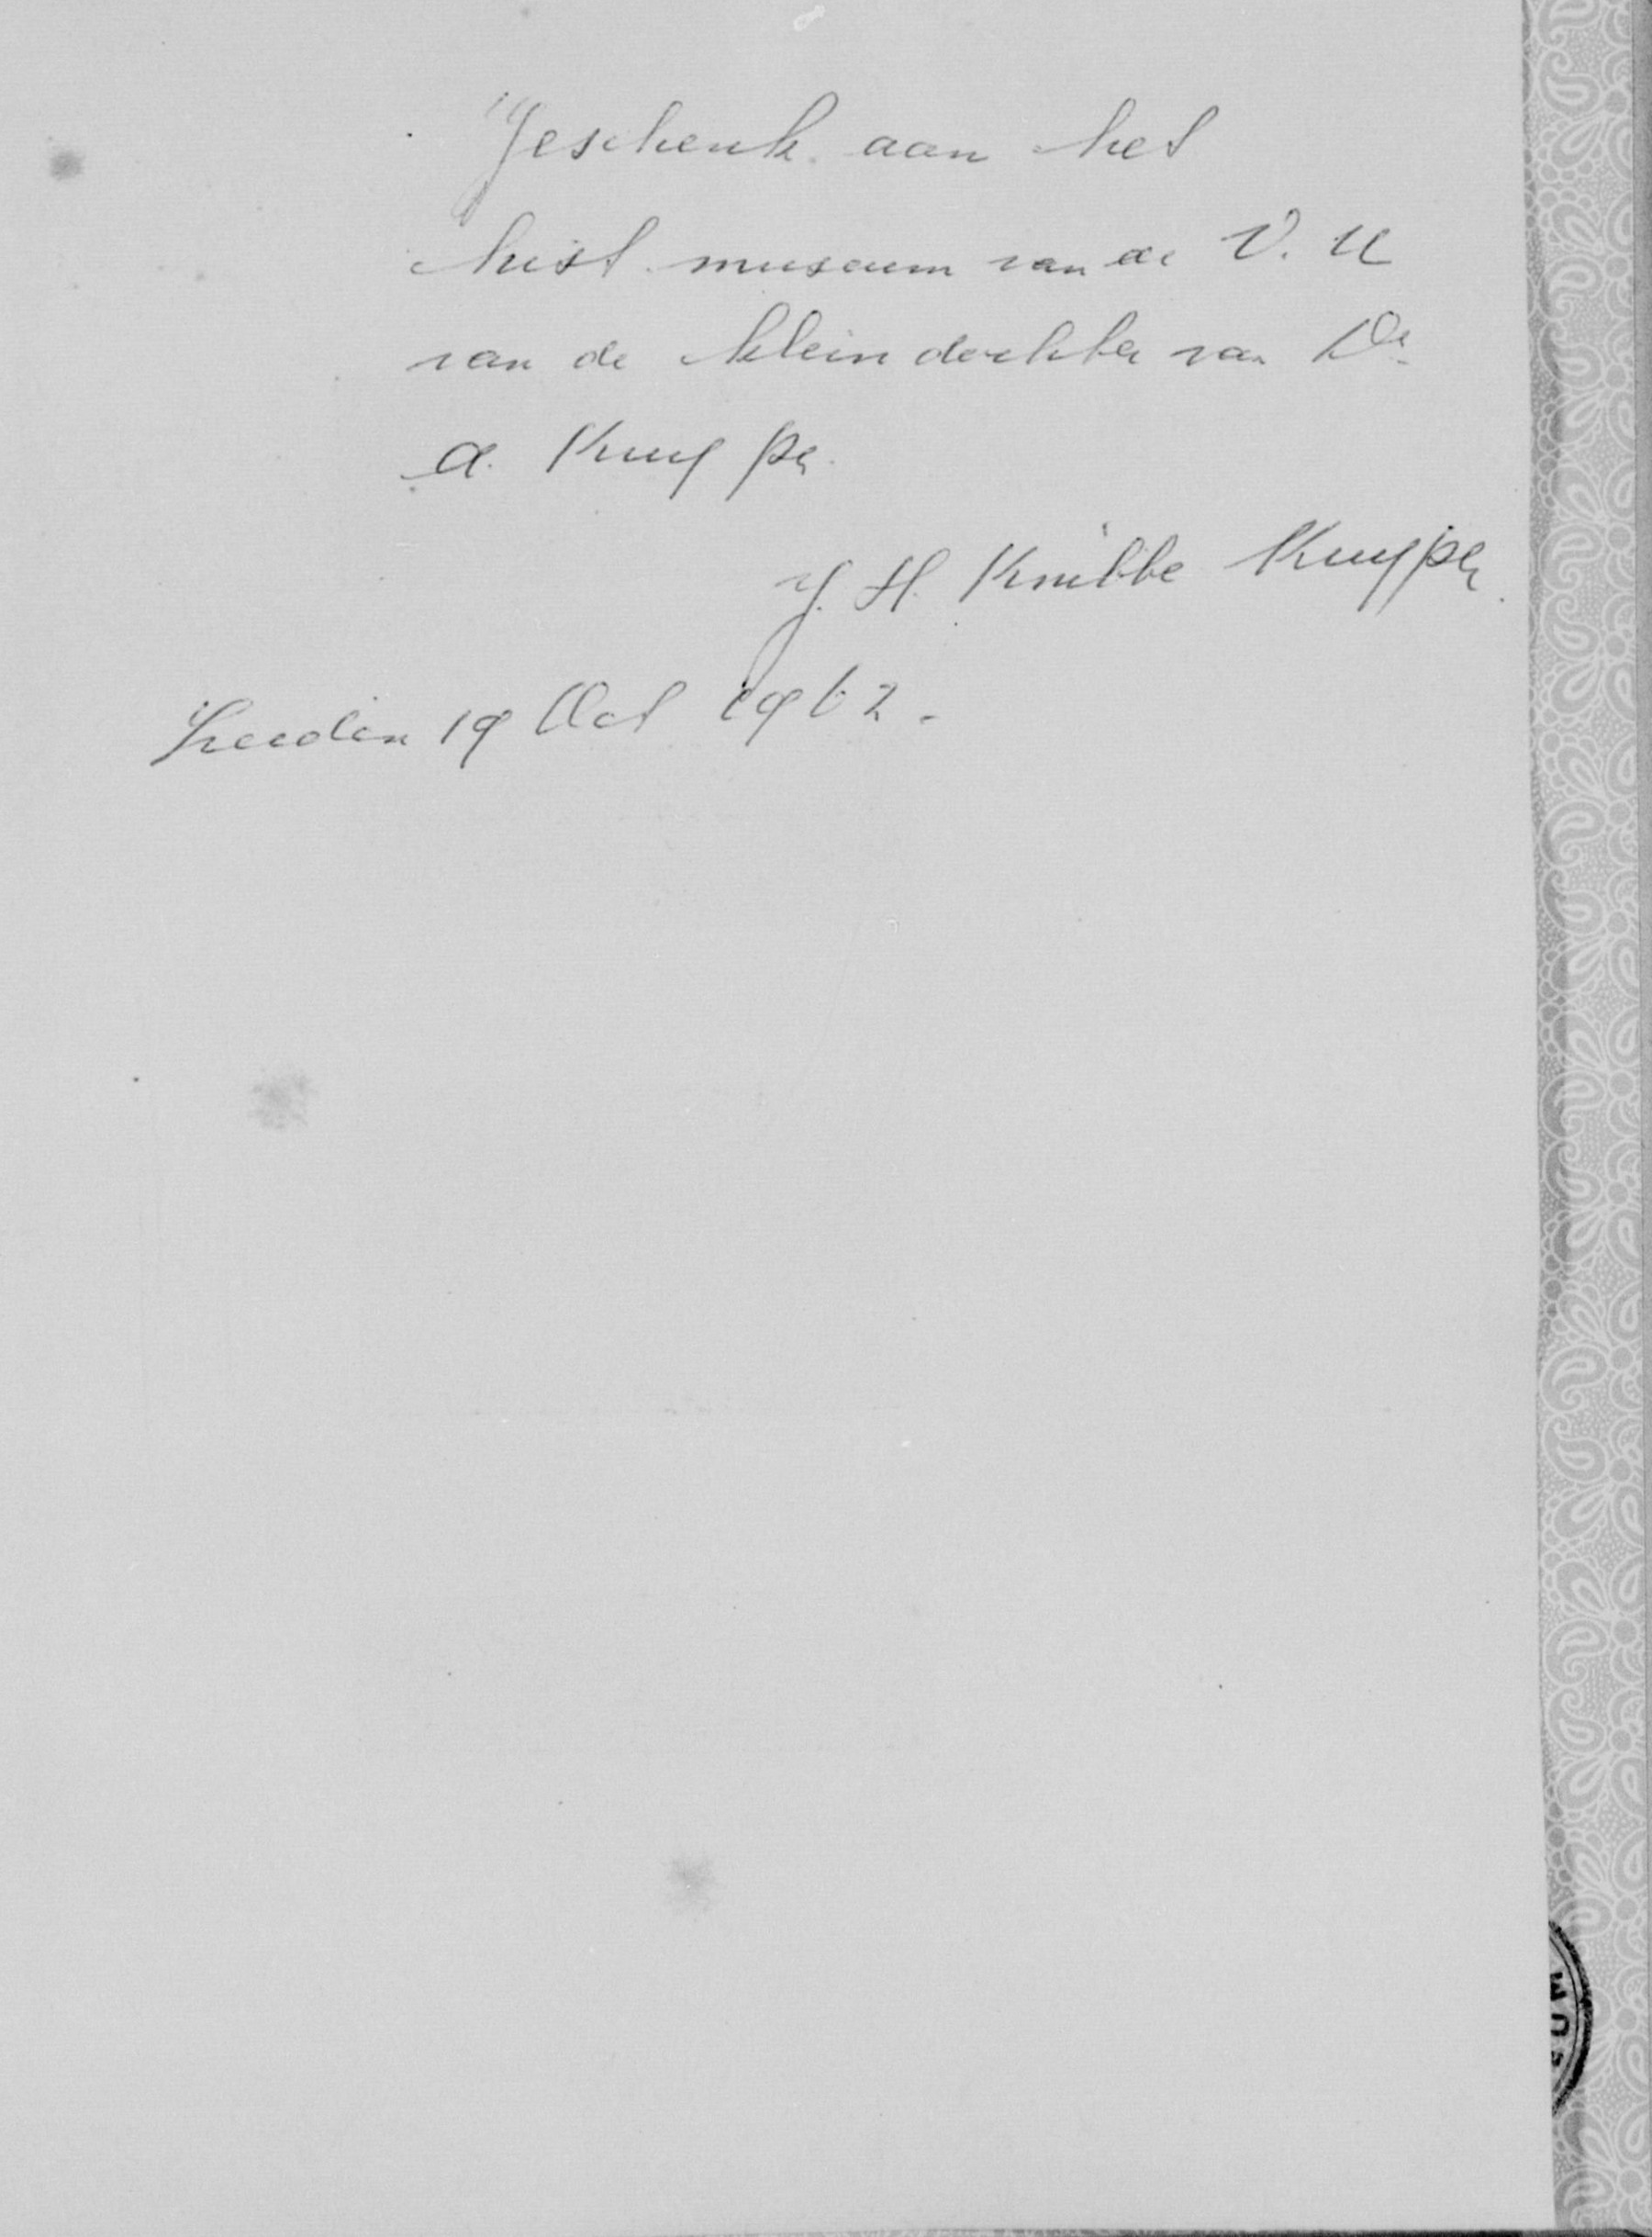 Geschenk aan het
hist. museum van de V. U
van de kleindochter van Dr.
A. Kuyper.
J. H. Knibbe Kuyper.
Leiden 19 Oct 1962.
MUS